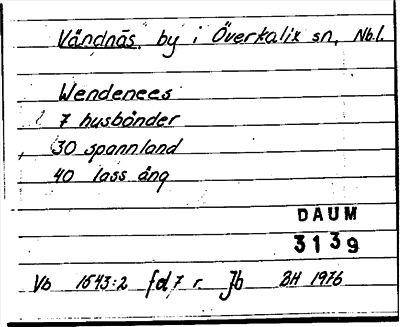 Vändnäs by i Överkalix sn, Nb.l.
Wendenees
7 husbönder
30 spannland
40 lass äng
DAUM
3139
Vb 1543:2 fol 7 r. Jb BH 1976